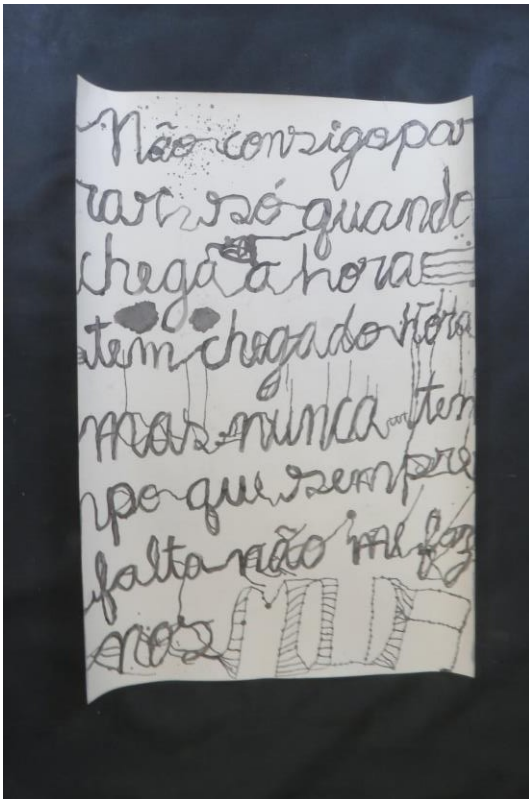 Não consigo par
rar só quando
chega a hora
tem chegado hora
mas nunca tem
po que sempre
falta não me faz
nos